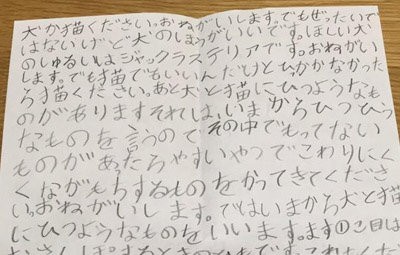 犬か猫ください。おねがいします。でもぜったいで
はないけど犬のほうがいいです。ほしい犬
のしゅるいはジャックラステリアです。おねがい
します。でも猫でもいいんだけどひかかなかった
ら猫ください。あと犬と猫にひつようなも
のがありますそれは、いまからひつひつよう
なものを言うのでその中でもってない
ものがあたらやすいやつでこわりにく
くながもちするものをかってきてくださ
い。おねがいします。ではいまから犬と猫
にひつようなものをいいます。ます①こ目は